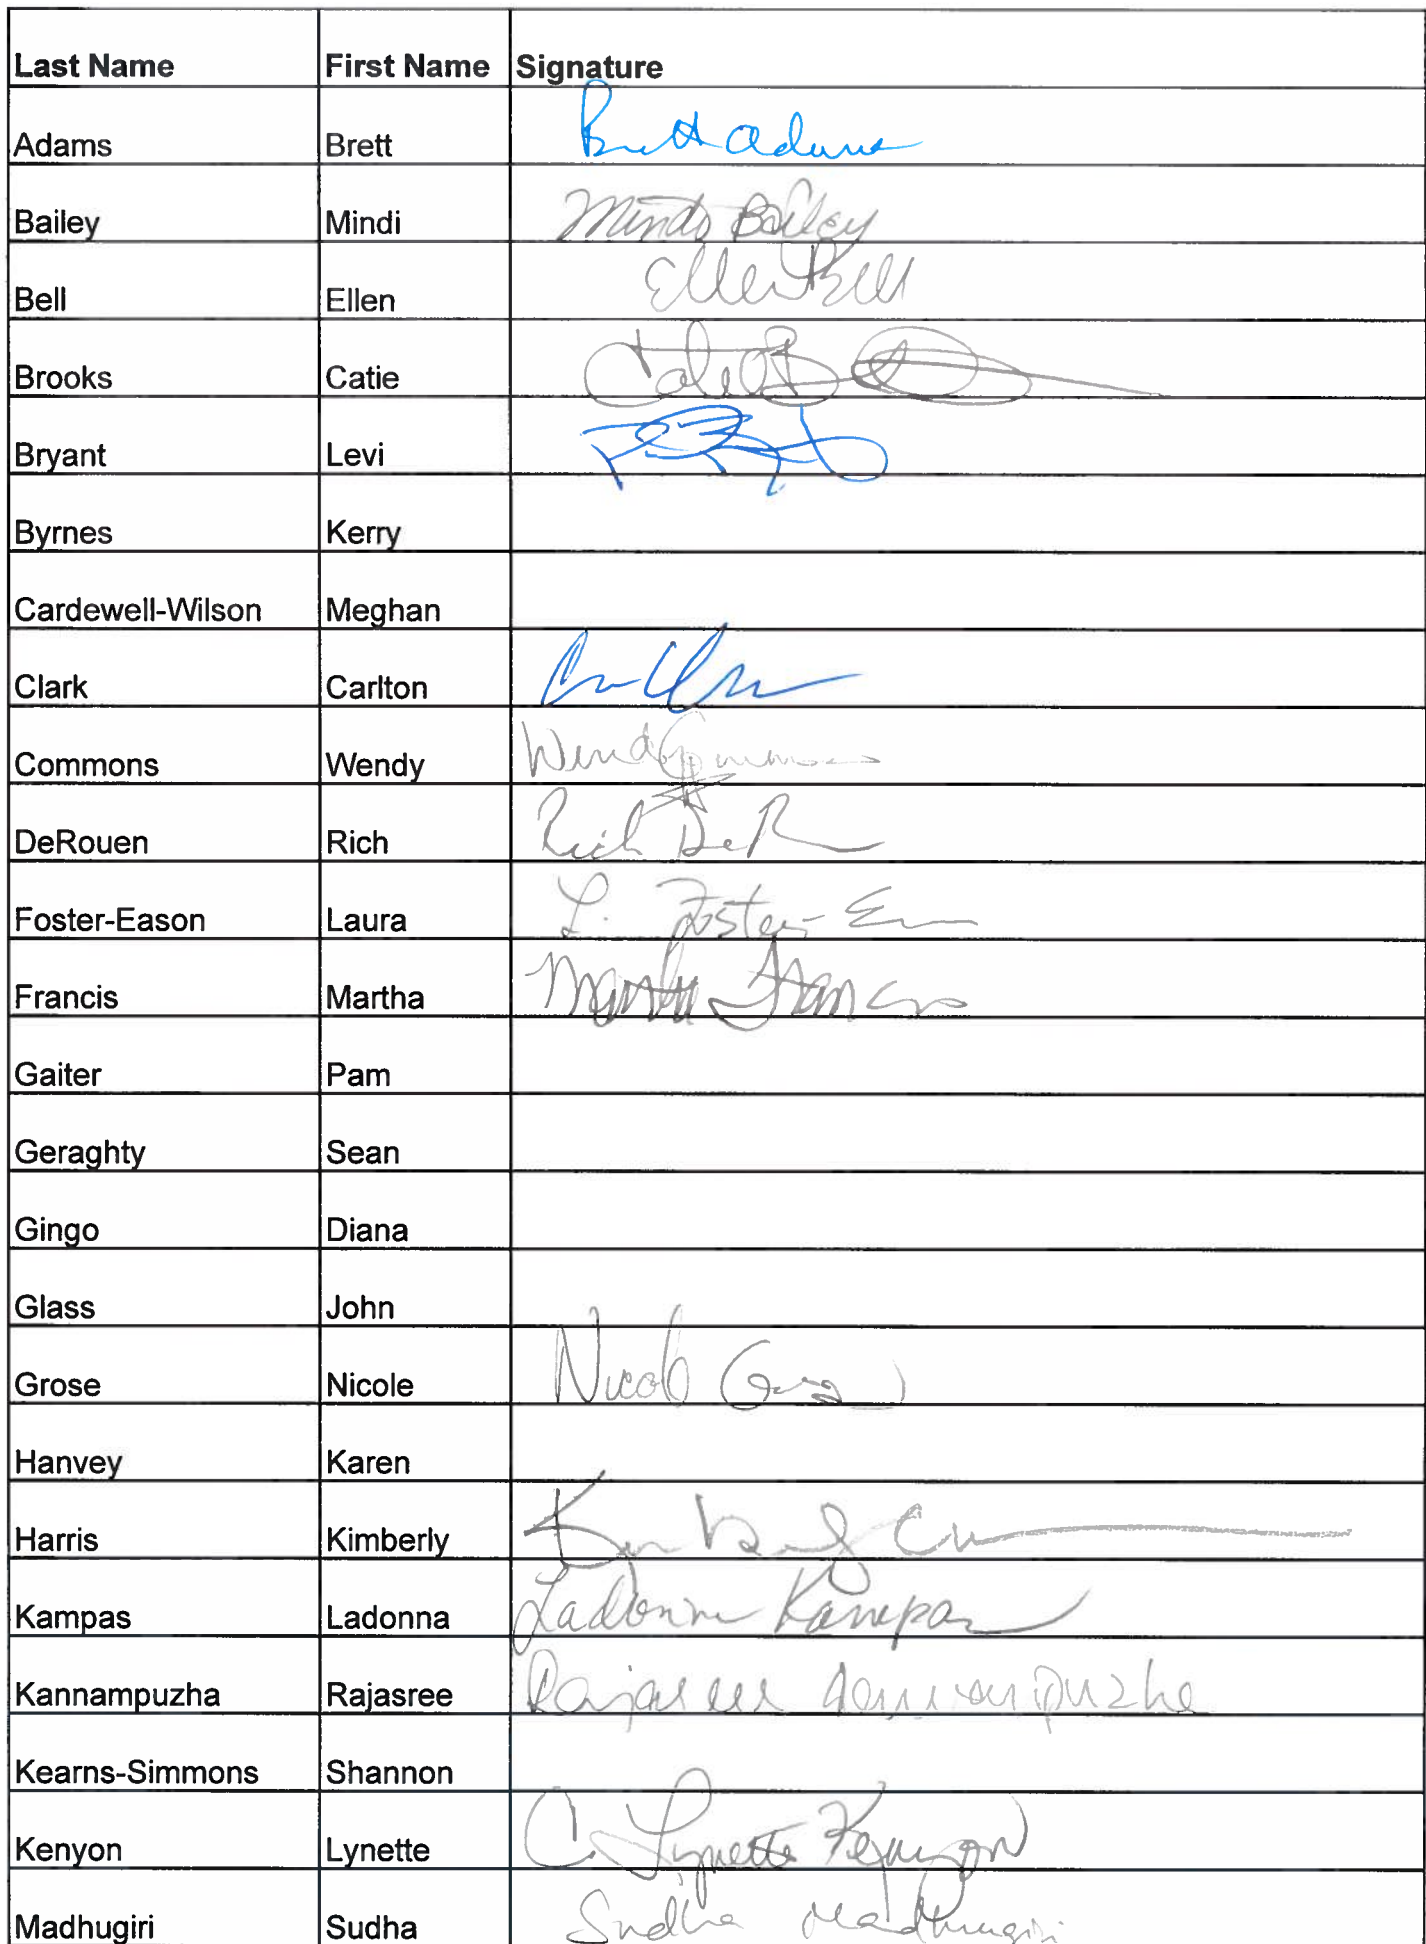 Last Name First Name Signature
Adams Brett Brett Adams
Bailey Mindi Mindi Bailey
Bell Ellen Ellen Bell
Brooks Catie
Bryant Levi
Byrnes Kerry
Cardewell-Wilson Meghan
Clark Carlton
Commons Wendy Wendy Commons
DeRouen Rich Rich DeR
Foster-Eason Laura L. Foster-E
Francis Martha Martha Francis
Gaiter Pam
Geraghty Sean
Gingo Diana
Glass John
Grose Nicole Nicole Grose
Hanvey Karen
Harris Kimberly
Kampas Ladonna Ladonna Kampas
Kannampuzha Rajasree Rajasree Kannampuzha
Kearns-Simmons Shannon
Kenyon Lynette C. Lynette Kenyon
Madhugiri Sudha Sudha Madhugiri